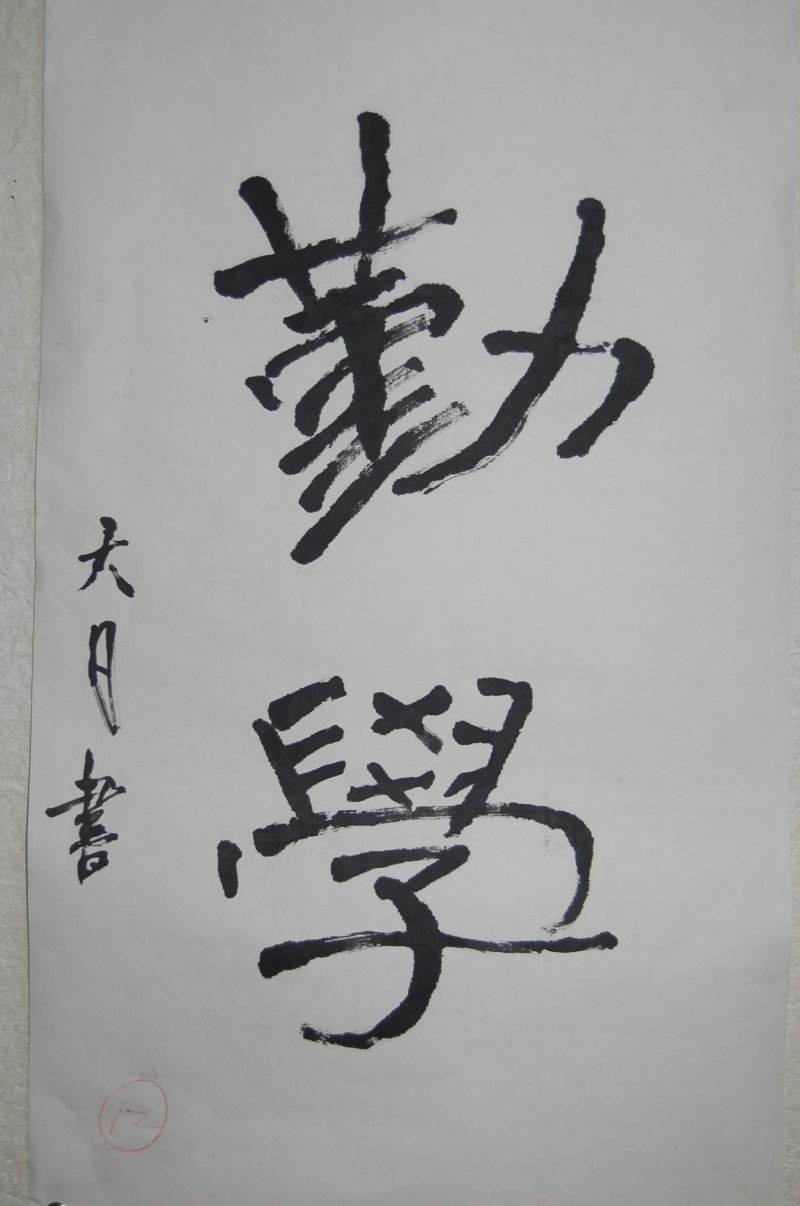 勤學
大月書